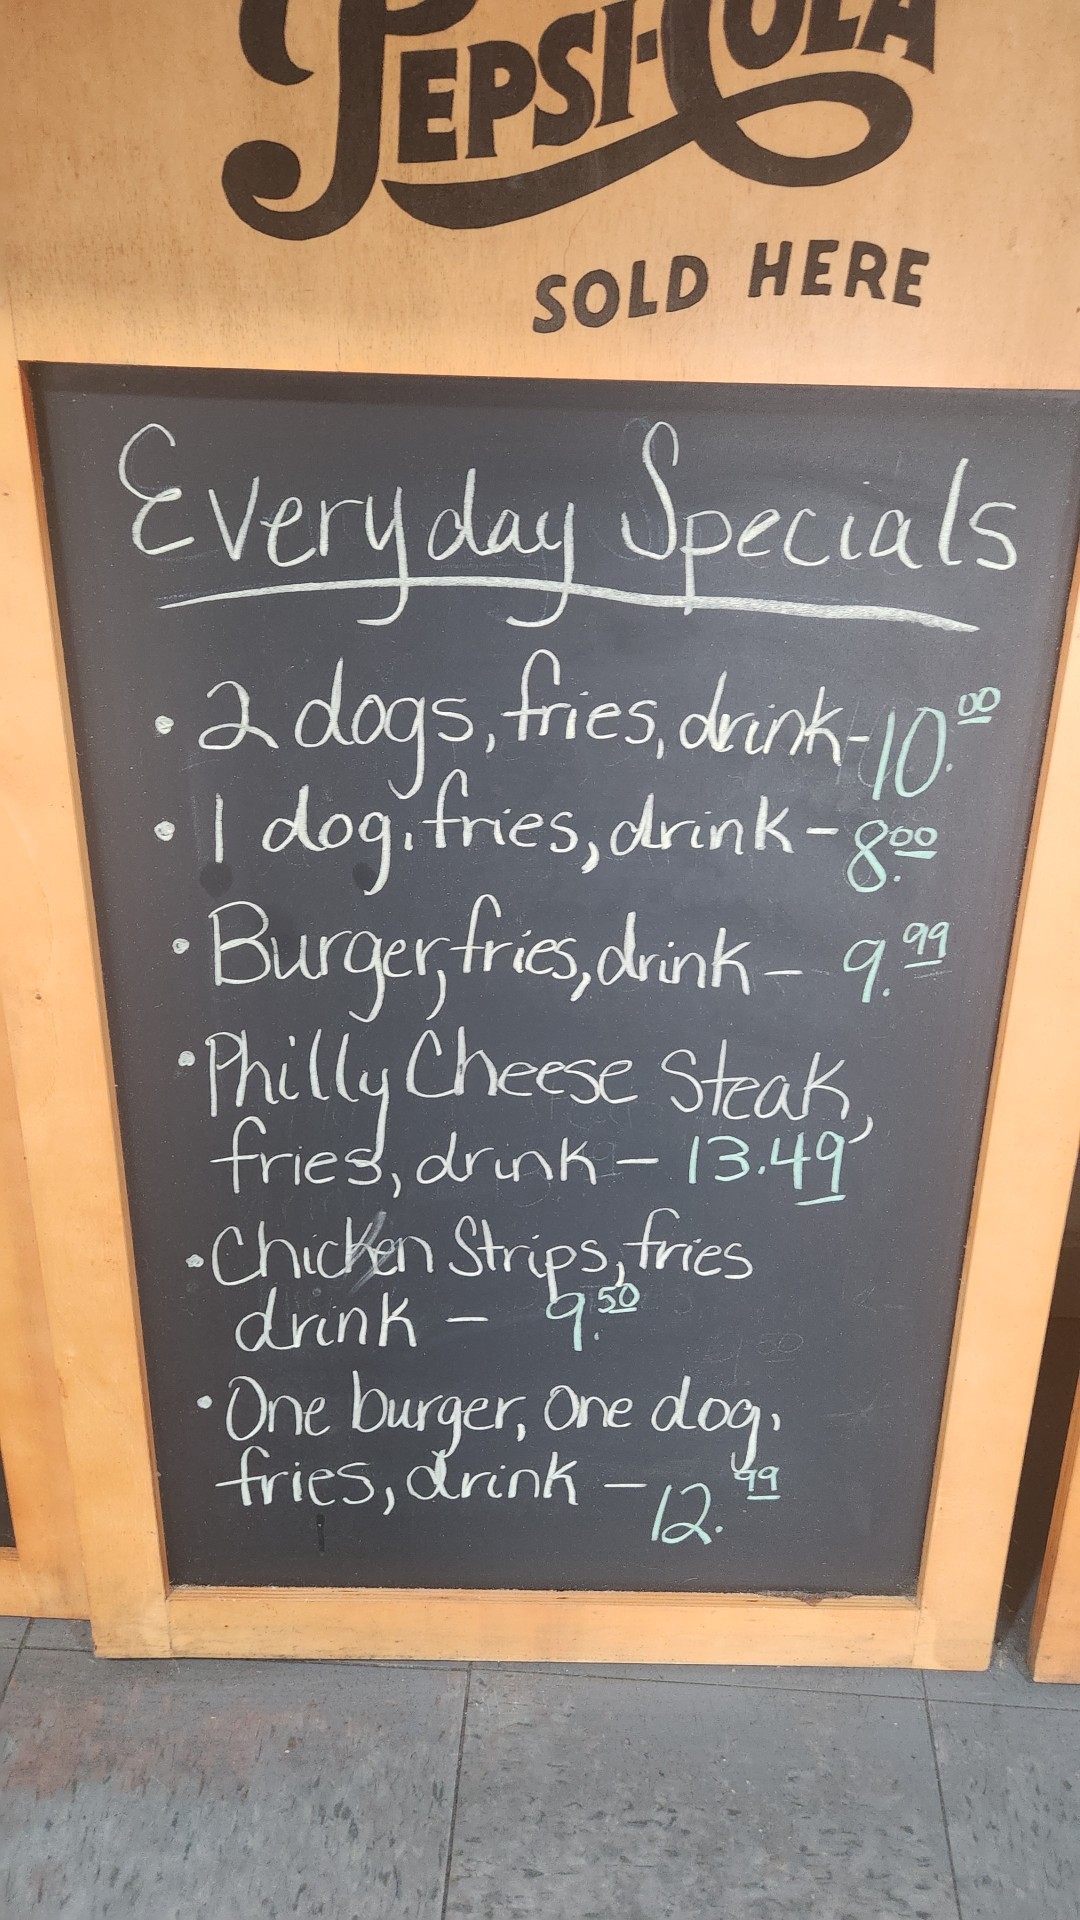 PEPSI-COLA
SOLD HERE
Everyday Specials
• 2 dogs, fries, drink - 10.00
• 1 dog, fries, drink - 8.00
• Burger, fries, drink - 9.99
• Philly Cheese Steak,
fries, drink - 13.49
• Chicken Strips, fries
drink - 9.50
• One burger, One dog,
fries, drink - 12.99